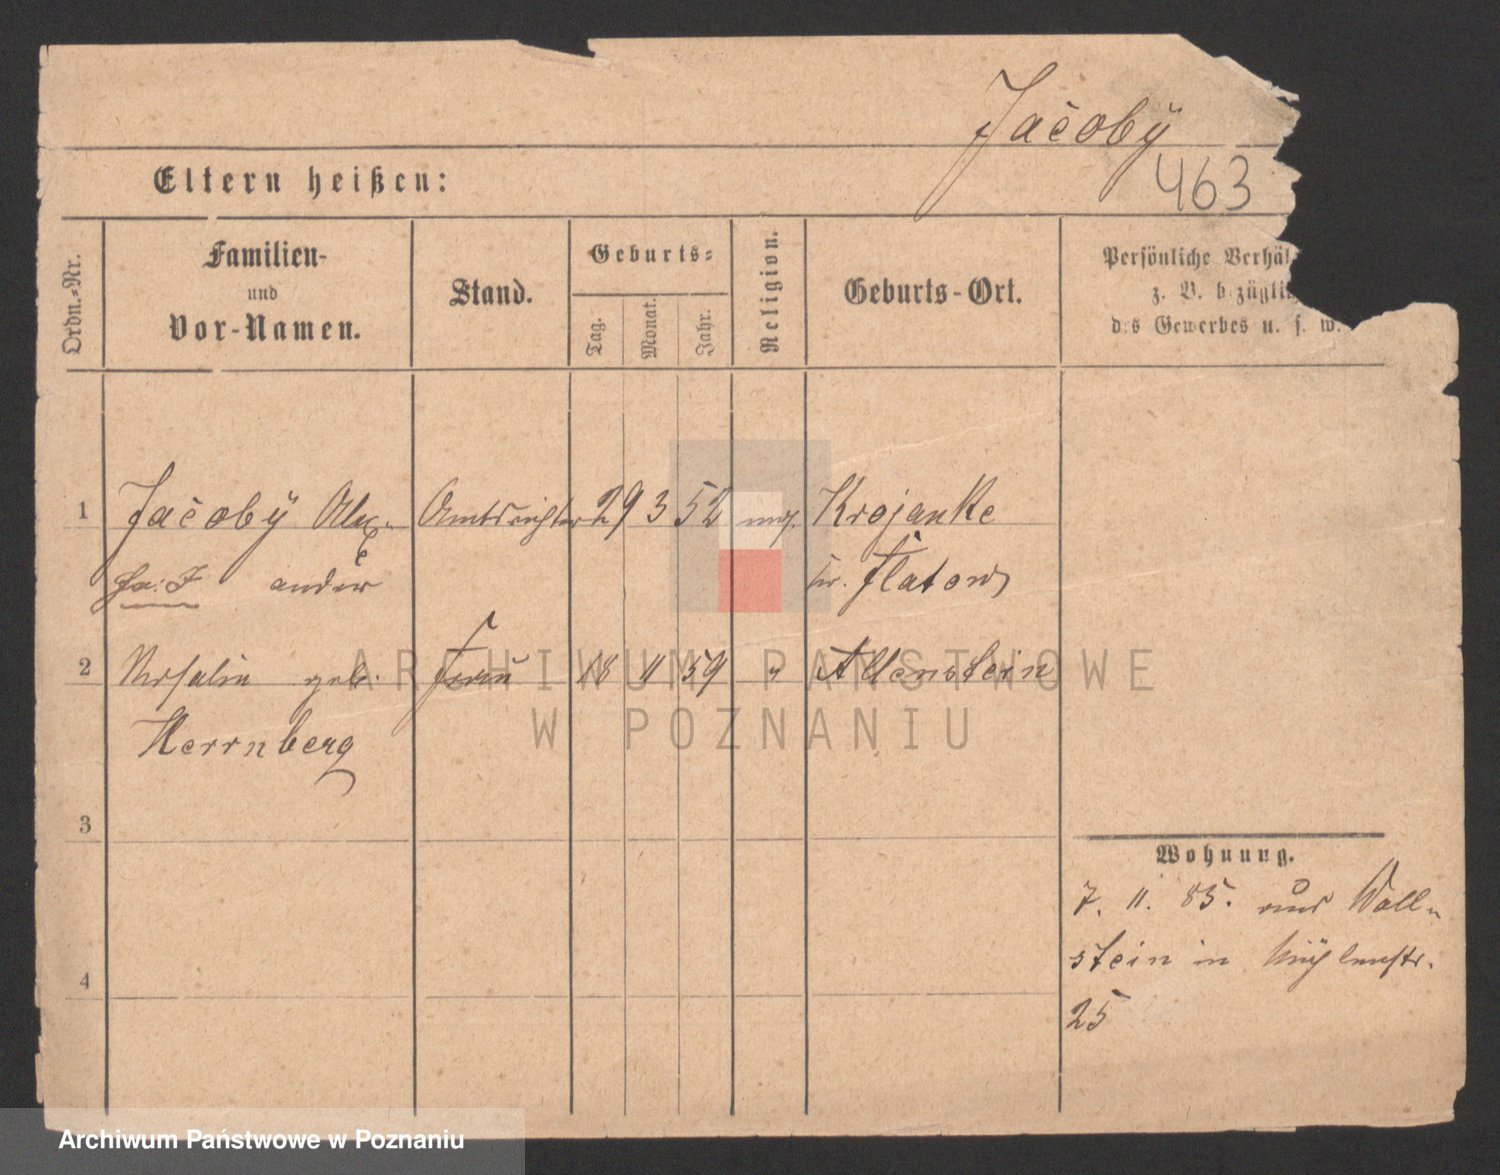 Jacoby
463
Eltern heißen:
Ordn.-Nr.
Familien-
und
Vor-Namen.
Stand.
Geburts-
Tag.
Monat.
Jahr.
Religion.
Geburts-Ort.
Persönliche Verhäl
z. B. bezüglic
des Gewerbes u. s. w.
1 Jacoby Alex- Amtsrichter 29 3 52 Krojanke
ander Kr. Flatow
2 Rosalie geb. Frau 18 11 59 " Allenstein
Herrnberg
3
4
Wohnung.
7. 11. 85. aus Woll-
stein in Mühlenstr.
25
ARCHIWUM PAŃSTWOWE
W POZNANIU
Archiwum Państwowe w Poznaniu